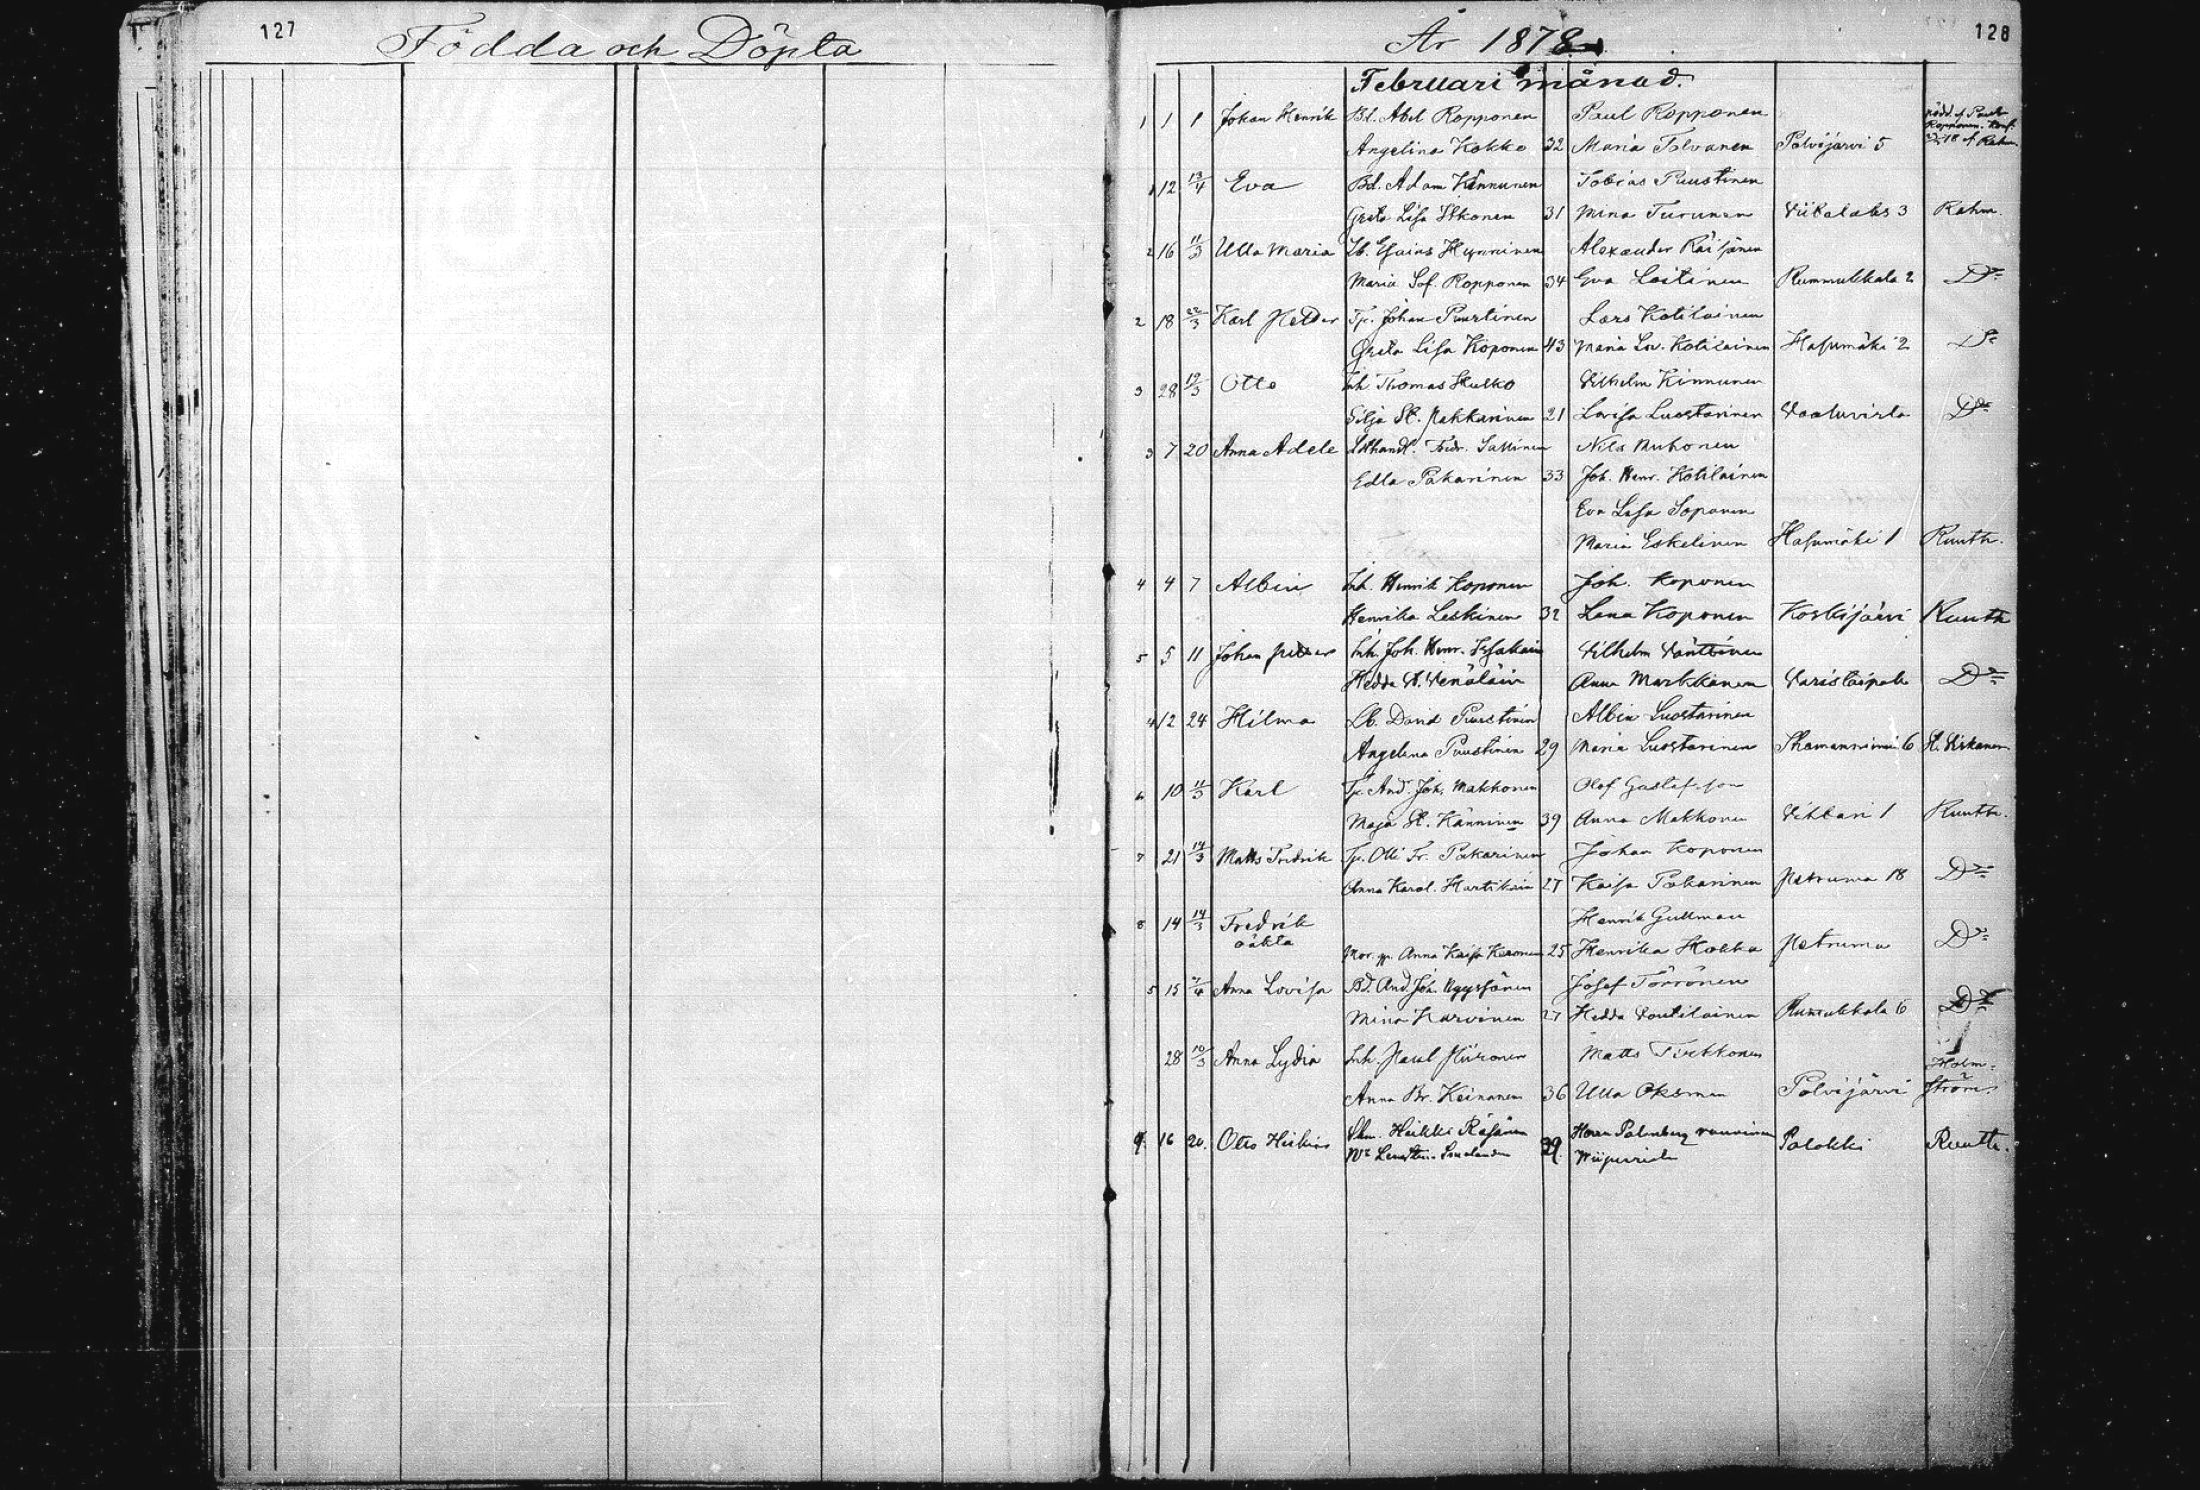 127
Födda och Döpta
År 1878
128
Februari månad.
1 1 1 Johan Henrik Bd. Abel Ropponen Paul Ropponen nödd. af Paul
Ropponen. Konf.
Angelina Kokko 32 Maria Tolvanen Polvijärvi 5 18 af Rahm.
1 12 13/4 Eva Bd. Adam Kinnunen Tobias Puustinen
Greta Lisa Ikonen 31 Mina Turunen 3 Rahm.
2 16 11/3 Ulla Maria Lb. Esaias Hynninen Alexander Räisänen
Maria Sof. Ropponen 34 Eva Loitinen Rummukkala 2 Do
2 18 22/3 Karl Petter Tp. Johan Puustinen Lars Kotilainen
Greta Lisa Koponen 43 Maria Lov. Kotilainen Hasumäki 2 Do
3 28 19/3 Otto Inh. Thomas Husko Vilhelm Kinnunen
Silja St. Pakkarinen 21 Lovisa Luostarinen Vaaluvirta Do
3 7 20 Anna Adele Fredr. Sallinen Nils Muhonen
Edla Pakarinen 33 Joh. Henr. Kotilainen
Eva Lisa Soponen
Maria Eskelinen Hasumäki 1 Ruuth.
4 4 7 Albin Inh. Henrik Koponen Joh. Koponen
Henrika Leskinen 32 Lena Koponen Koskijärvi Ruuth
5 5 11 Johan Petter Inh. Joh. Henr. Vilhelm Vänttinen
Hedda St. Venäläin Anna Markkanen Varistaipale Do
4 12 24 Hilma Lb. David Puustinen Albin Luostarinen
Angelina Puustinen 29 Maria Luostarinen 6 H. Siikanen
6 10 11/3 Karl Tp. And. Joh. Makkonen Olof Gustafsson
Maja St. Känninen 39 Anna Makkonen Vihtari 1 Ruuth.
7 21 14/3 Matts Fredrik Tp. Olli Fr. Pakarinen Johan Koponen
Anna Karol. Hartikain 27 Kaisa Pakarinen Petruma 18 Do
8 14 14/3 Fredrik Henrik Gullman
oäkta
Mor. pp. Anna Kaisa Keronen 25 Henrika Hokka Petruma Do
5 15 7/4 Anna Lovisa Bd. And. Joh. Nyyssönen Josef Törrönen
Mina Karvinen 27 Hedda Voutilainen Rumukkala 6 Do
28 10/3 Anna Lydia Inh. Paul Hiironen Matts Tirkkonen Holm-
Anna Br. Keinanen 36 Ulla Oksman Polvijärvi ström.
9 16 20. Otto Heikki Räsänen Herra Palmberg rouvineen Palokki Ruuth.
39. Wiipurista